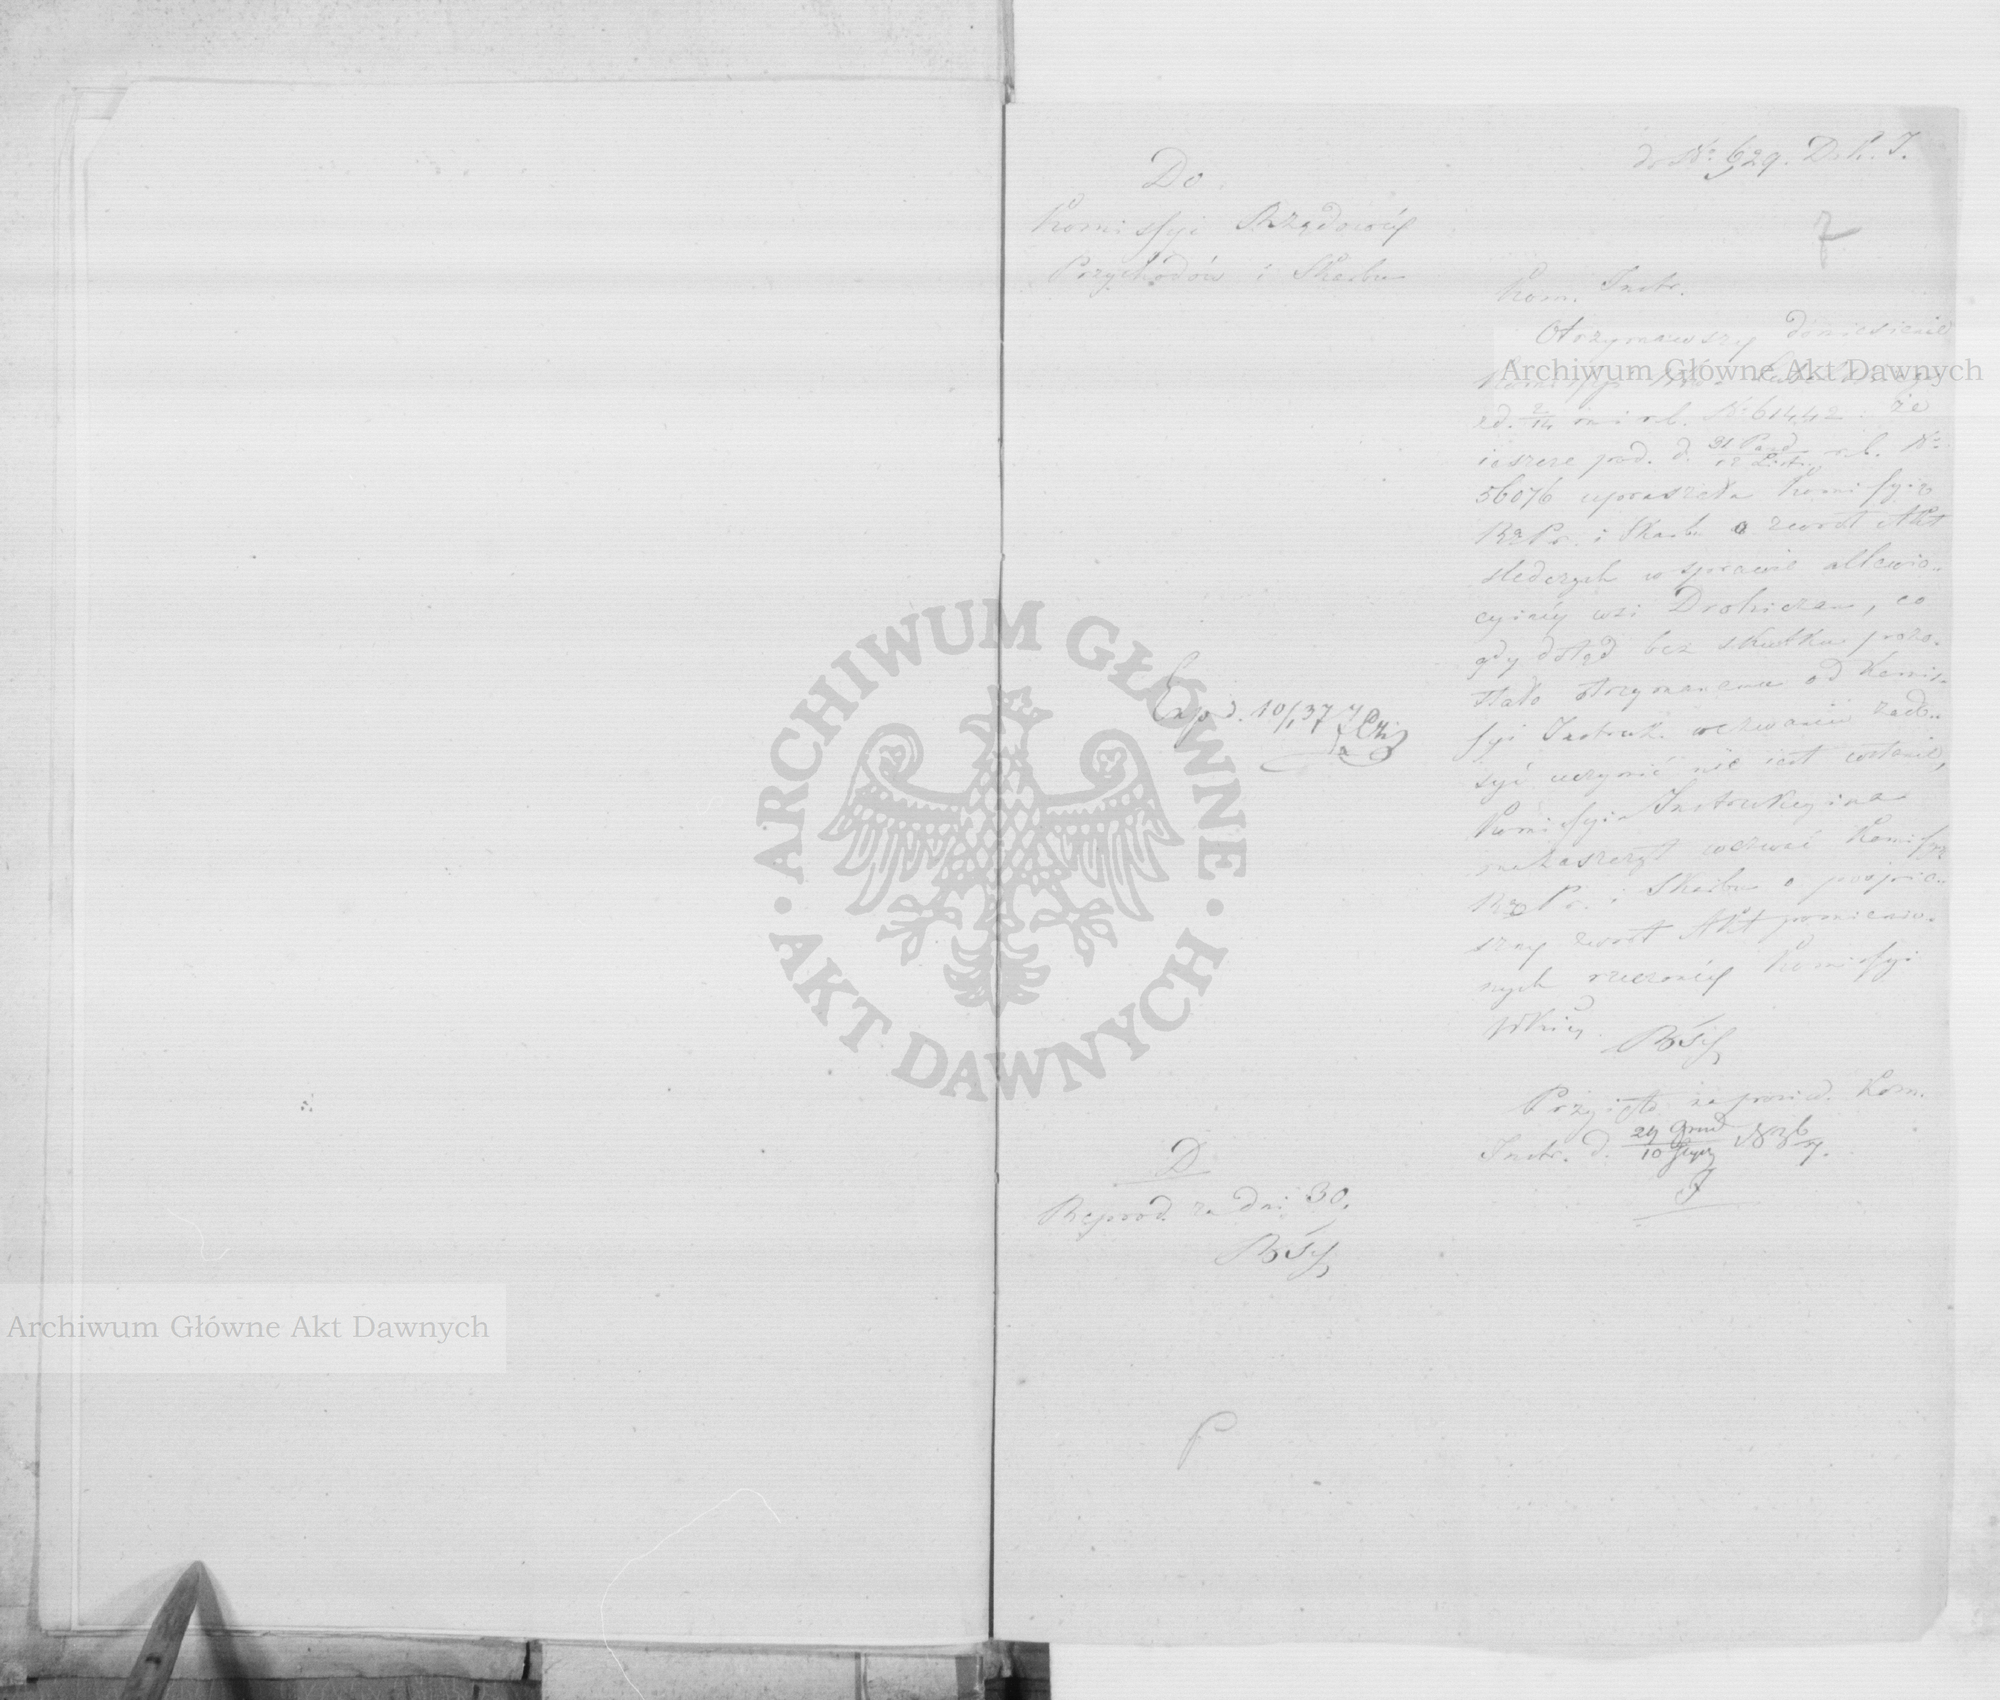 do No 629. Dek. I.
7
Do
Komissyi Rządowéj
Przychodów i Skarbu
Kom. Instr.
Otrzymawszy doniesienie
Komissyi
zd. 2/14 m i r. b. No 61442: że
ieszcze pod. d. 31 Pazd/12 Listo. r. b. No
56076 upraszała Komissyię
Rz Pr. i Skarbu o zwrot Akt
śledczych w sprawie allewia-
cyinéy wsi Drohiczan, co
gdy dotąd bez skutku pozo-
stało otrzymanemu od Komis-
syi Instruk. wezwaniu zado-
syć uczynić nie iest wstanie,
Komissyia Instrukcyina
ma zaszczyt wezwać Komissyę
Rz Pr. i Skarbu o pospie-
szny zwrot Akt pomienio-
nych rzeczonéj Komissyi
Exp d. 10/1 37
Przyięto na posied. Kom.
Instr. d. 29 Grud/10 Stycz 1836/7.
D
Reprod. za dni 30.
Archiwum Główne Akt Dawnych
Archiwum Główne Akt Dawnych
ARCHIWUM GŁÓWNE
AKT DAWNYCH